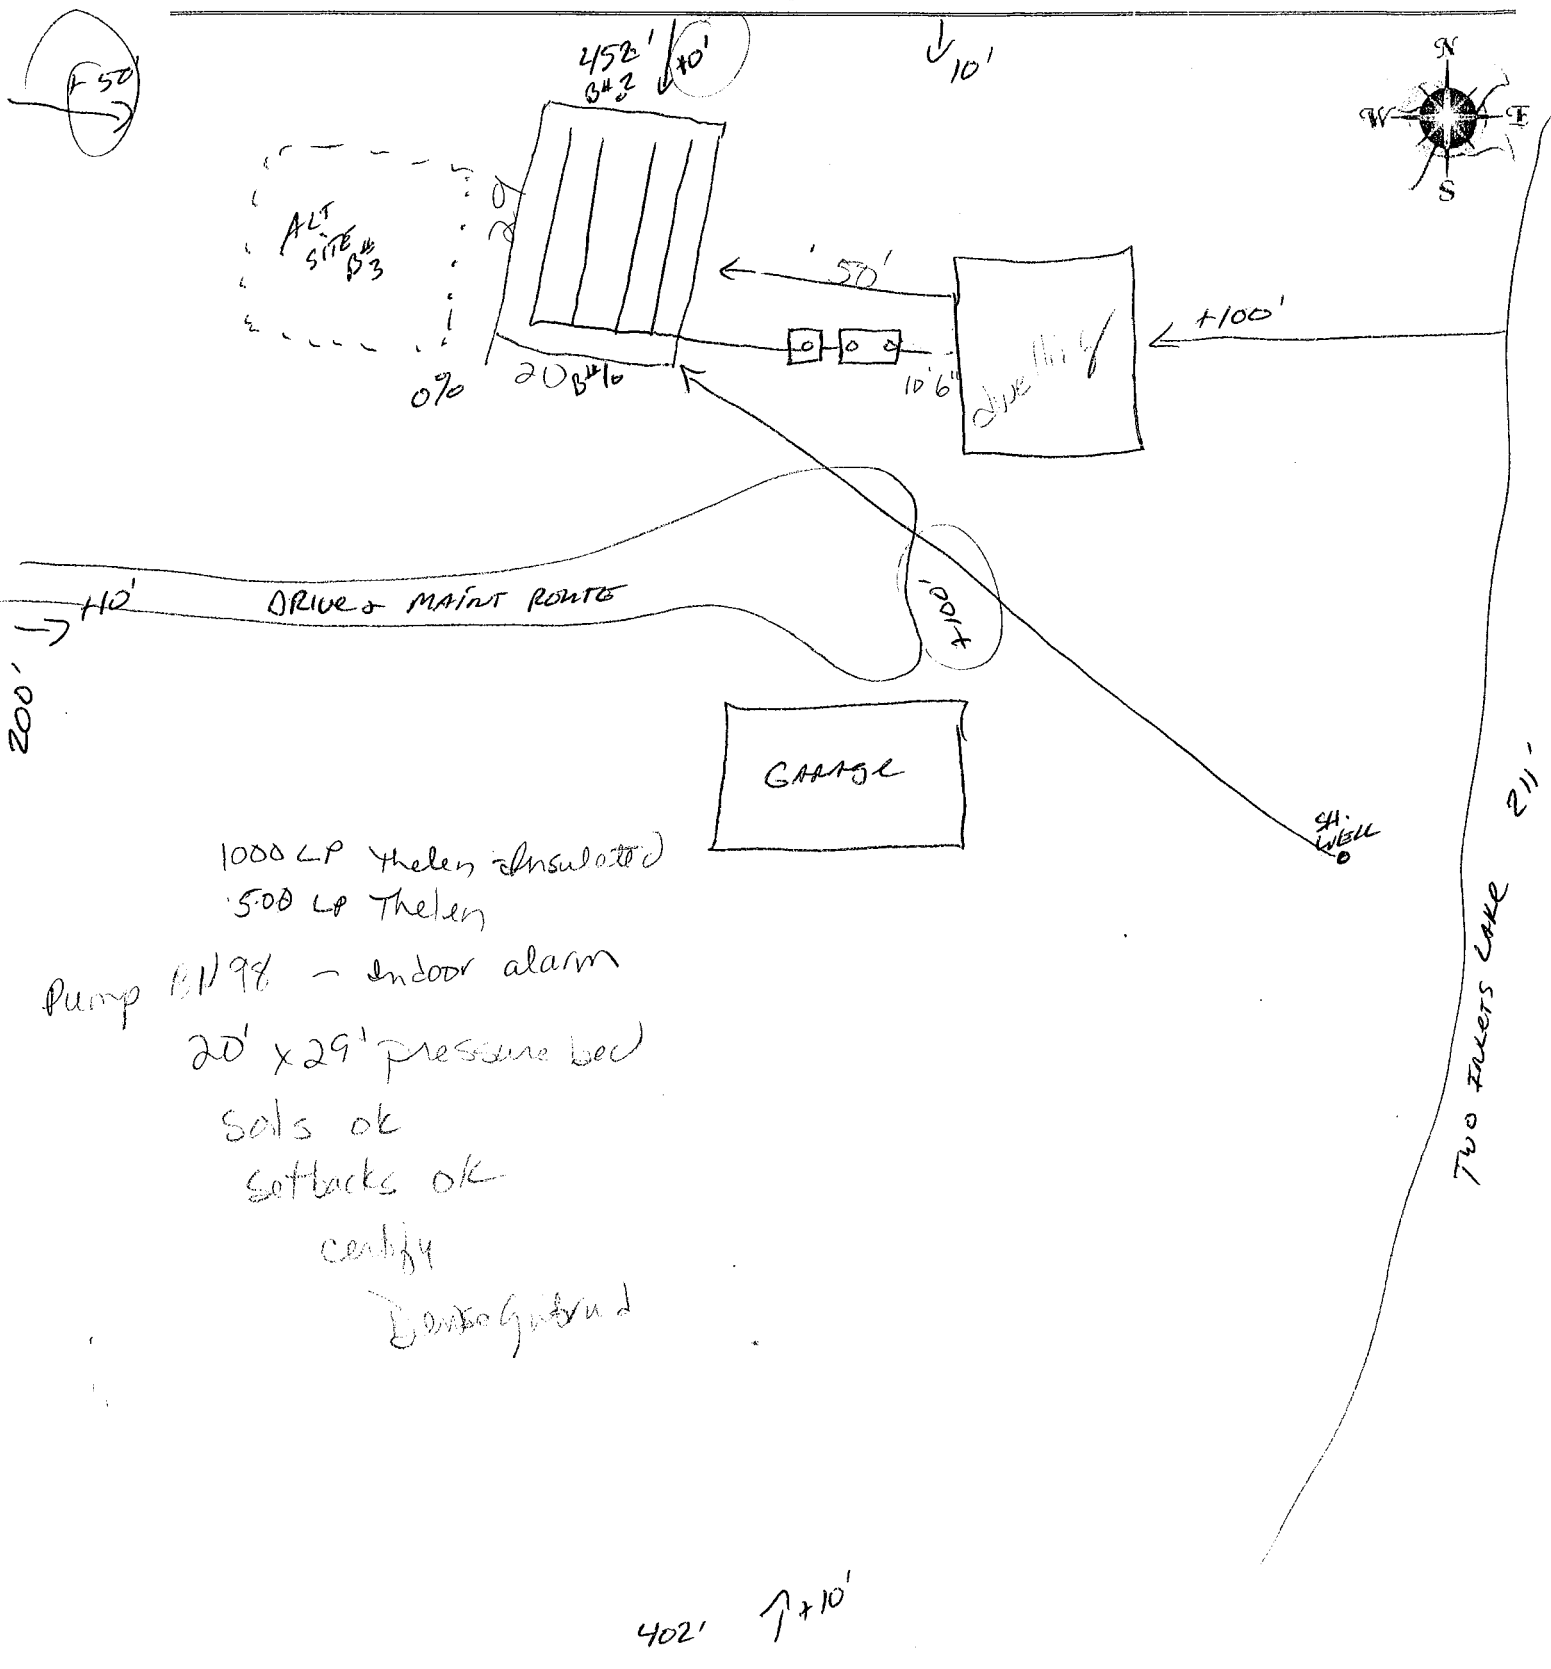 +50'
452'
B#2
+10'
10'
N
W
E
S
ALT
SITE
B#3
29
50'
+100'
20
B#1
0%
10'6"
dwelling
+10'
DRIVE & MAINT ROUTE
+100'
200'
GARAGE
SH.
WELL
211'
TWO INLETS LAKE
1000 LP Thelen Insulated
500 LP Thelen
Pump BN98 - Indoor alarm
20' x 29' pressure bed
Soils ok
Setbacks ok
certify
402' +10'